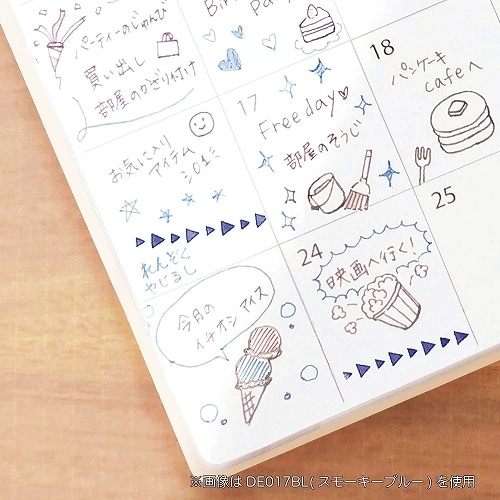 パーティーのじゅんび
買い出し
部屋のかざり付け
17
Free day♡
部屋のそうじ
18
パンケーキ
cafeへ
お気に入り
アイテム
れんぞく
やじるし
今月の
イチオシ アイス
24
映画へ行く!
25
※画像はDE017BL(スモーキーブルー)を使用